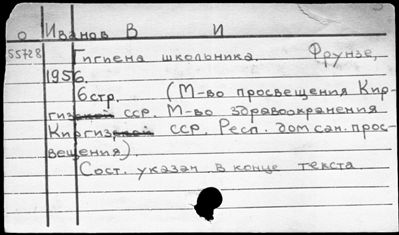 о Иванов В И
55728 Гигиена школьника. Фрунзе,
1956.
6стр. (М-во просвещения Кир-
гизской ССР. М-во здравоохранения
Киргизской ССР. Респ. дом сан. прос-
вещения)
Сост. указан в конце текста